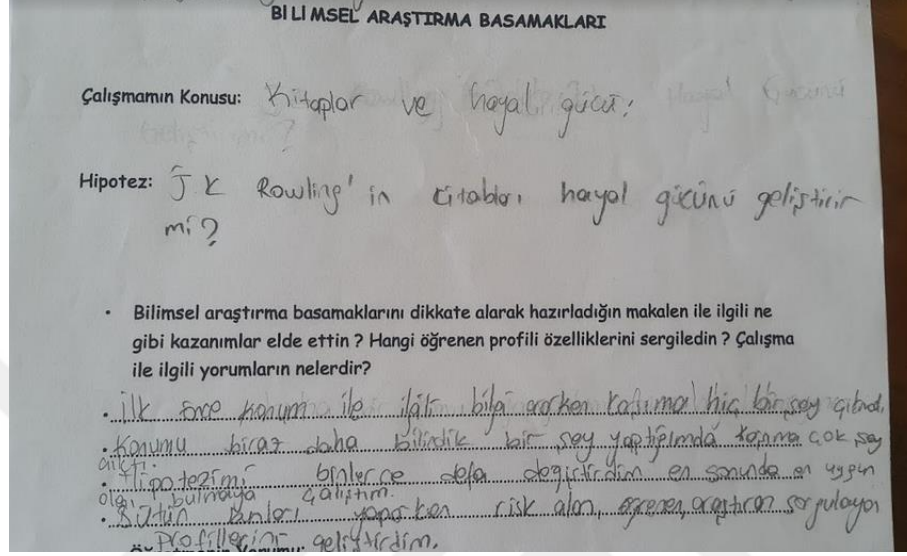 BİLİMSEL ARAŞTIRMA BASAMAKLARI
Çalışmamın Konusu: Kitaplar ve hayal gücü;
Hipotez: J K Rowling' in kitabları hayal gücünü geliştirir
mi?
• Bilimsel araştırma basamaklarını dikkate alarak hazırladığın makalen ile ilgili ne
gibi kazanımlar elde ettin ? Hangi öğrenen profili özelliklerini sergiledin ? Çalışma
ile ilgili yorumların nelerdir?
• İlk önce konum ile ilgili bilgi ararken hiç bir şey çıkmadı.
• Konumu biraz daha bilindik bir şey yaptığımda çok şey
çıktı.
• Hipotezimi binlerce defa değiştirdim en sonunda en uygun
olanı bulmaya çalıştım.
• Bütün bunları yaparken risk alan, öğrenen, araştıran sorgulayan
profillerini geliştirdim.